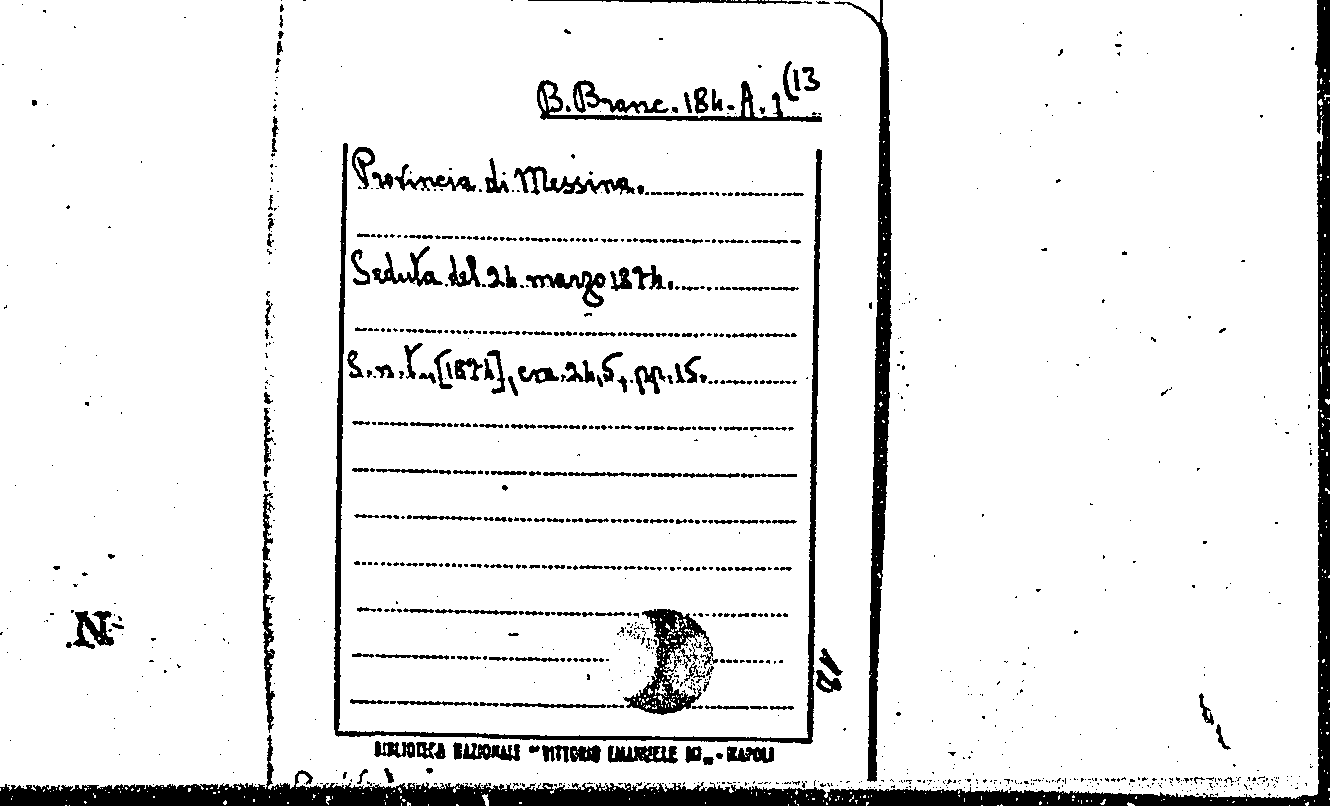 B. Branc. 184. A. 1 (13
Provincia di Messina.
Seduta del 24 marzo 1874.
S. n. t., [1874], cm. 24,5, pp. 15.
BIBLIOTECA NAZIONALE "VITTORIO EMANUELE III„ - NAPOLI
N